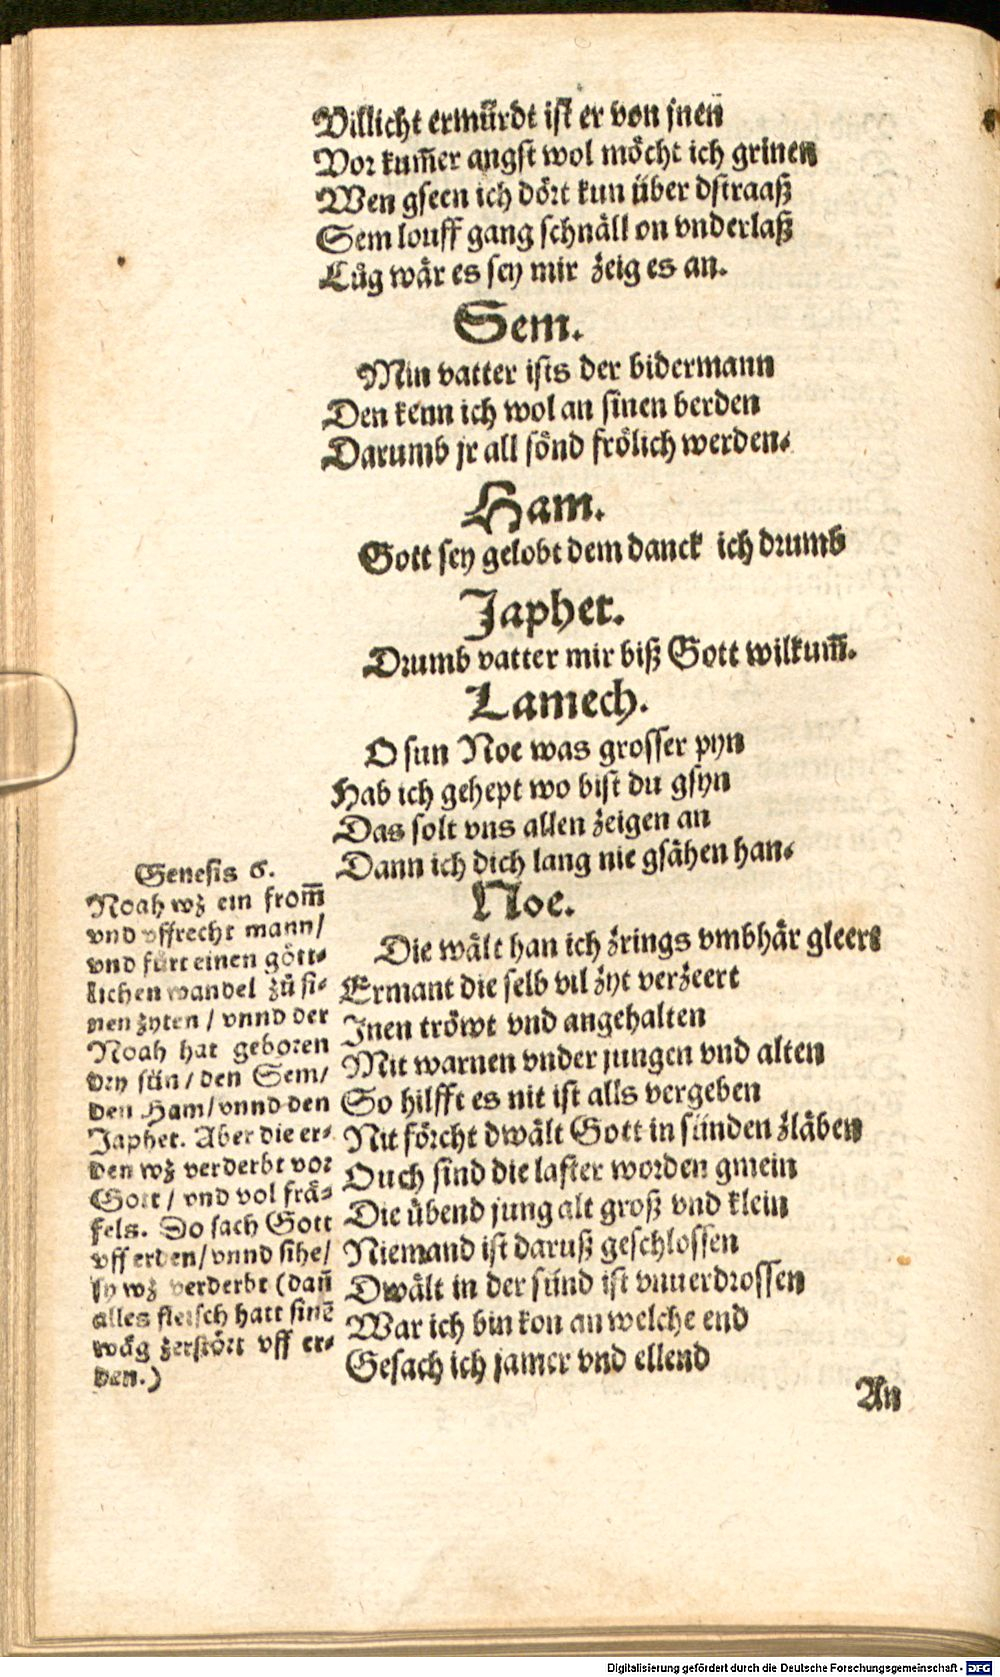 Villicht ermürdt ist er von jnen
Vor kum̄er angst wol möcht ich grinen
Wen gseen ich dört kun über dstraaß
Sem louff gang schnäll on vnderlaß
Lůg wär es sey mir zeig es an.
Sem.
Min vatter ists der bidermann
Den kenn ich wol an sinen berden
Darumb jr all sönd frölich werden.
Ham.
Gott sey gelobt dem danck ich drumb
Japhet.
Drumb vatter mir biß Gott wilkum̄.
Lamech.
O sun Noe was grosser pyn
Hab ich gehept wo bist du gsyn
Das solt vns allen zeigen an
Dann ich dich lang nie gsähen han.
Noe.
Die wält han ich zrings vmbhär gleert
Ermant die selb vil zyt verzeert
Inen tröwt vnd angehalten
Mit warnen vnder jungen vnd alten
So hilfft es nit ist alls vergeben
Nit förcht dwält Gott in sünden zläben
Ouch sind die laster worden gmein
Die übend jung alt groß vnd klein
Niemand ist daruß geschlossen
Dwält in der sünd ist vnuerdrossen
War ich bin kon an welche end
Gesach ich jamer vnd ellend
An
Genesis 6.
Noah wz ein from̄
vnd vffrecht mann/
vnd fürt einen gött-
lichen wandel zů si-
nen zyten / vnnd der
Noah hat geboren
dry sün / den Sem/
den Ham/ vnnd den
Japhet. Aber die er-
den wz verderbt vor
Gott / vnd vol frä-
fels. Do sach Gott
vff erden/ vnnd sihe/
sy wz verderbt (dan̄
alles fleisch hatt sinē
wäg zerstört vff er-
den.)
Digitalisierung gefördert durch die Deutsche Forschungsgemeinschaft - DFG